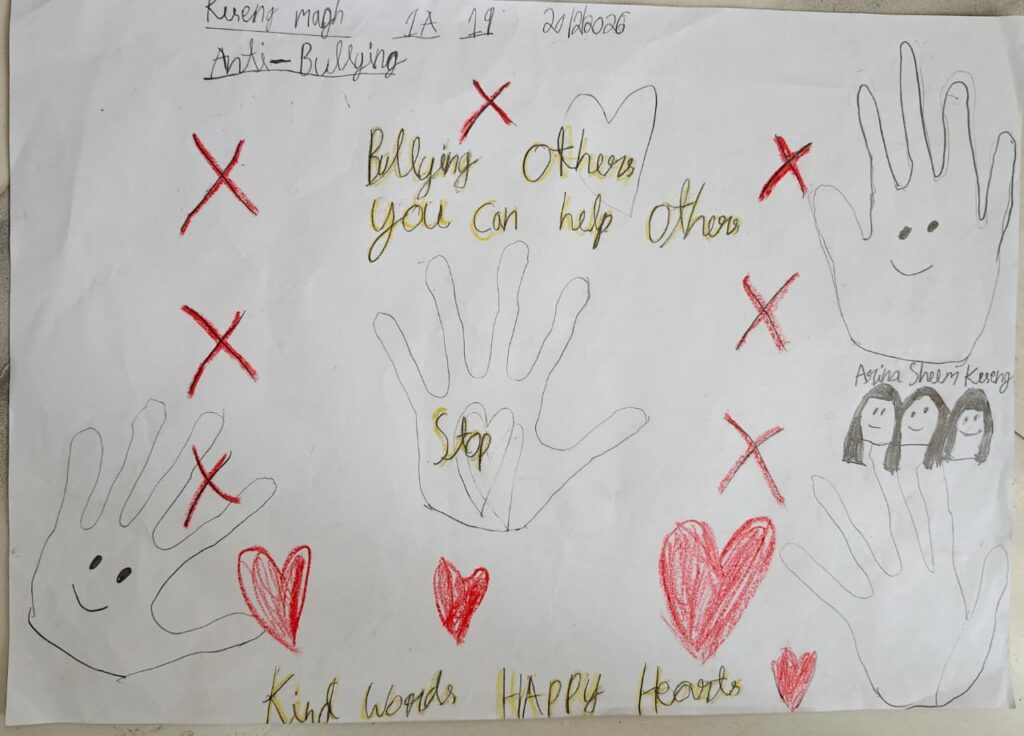 Kuseng magh 1A 19 20/2/2026
Anti-Bullying
Bullying Others
you can help Others
Stop
Arina Sheem Kuseng
Kind Words HAPPY Hearts